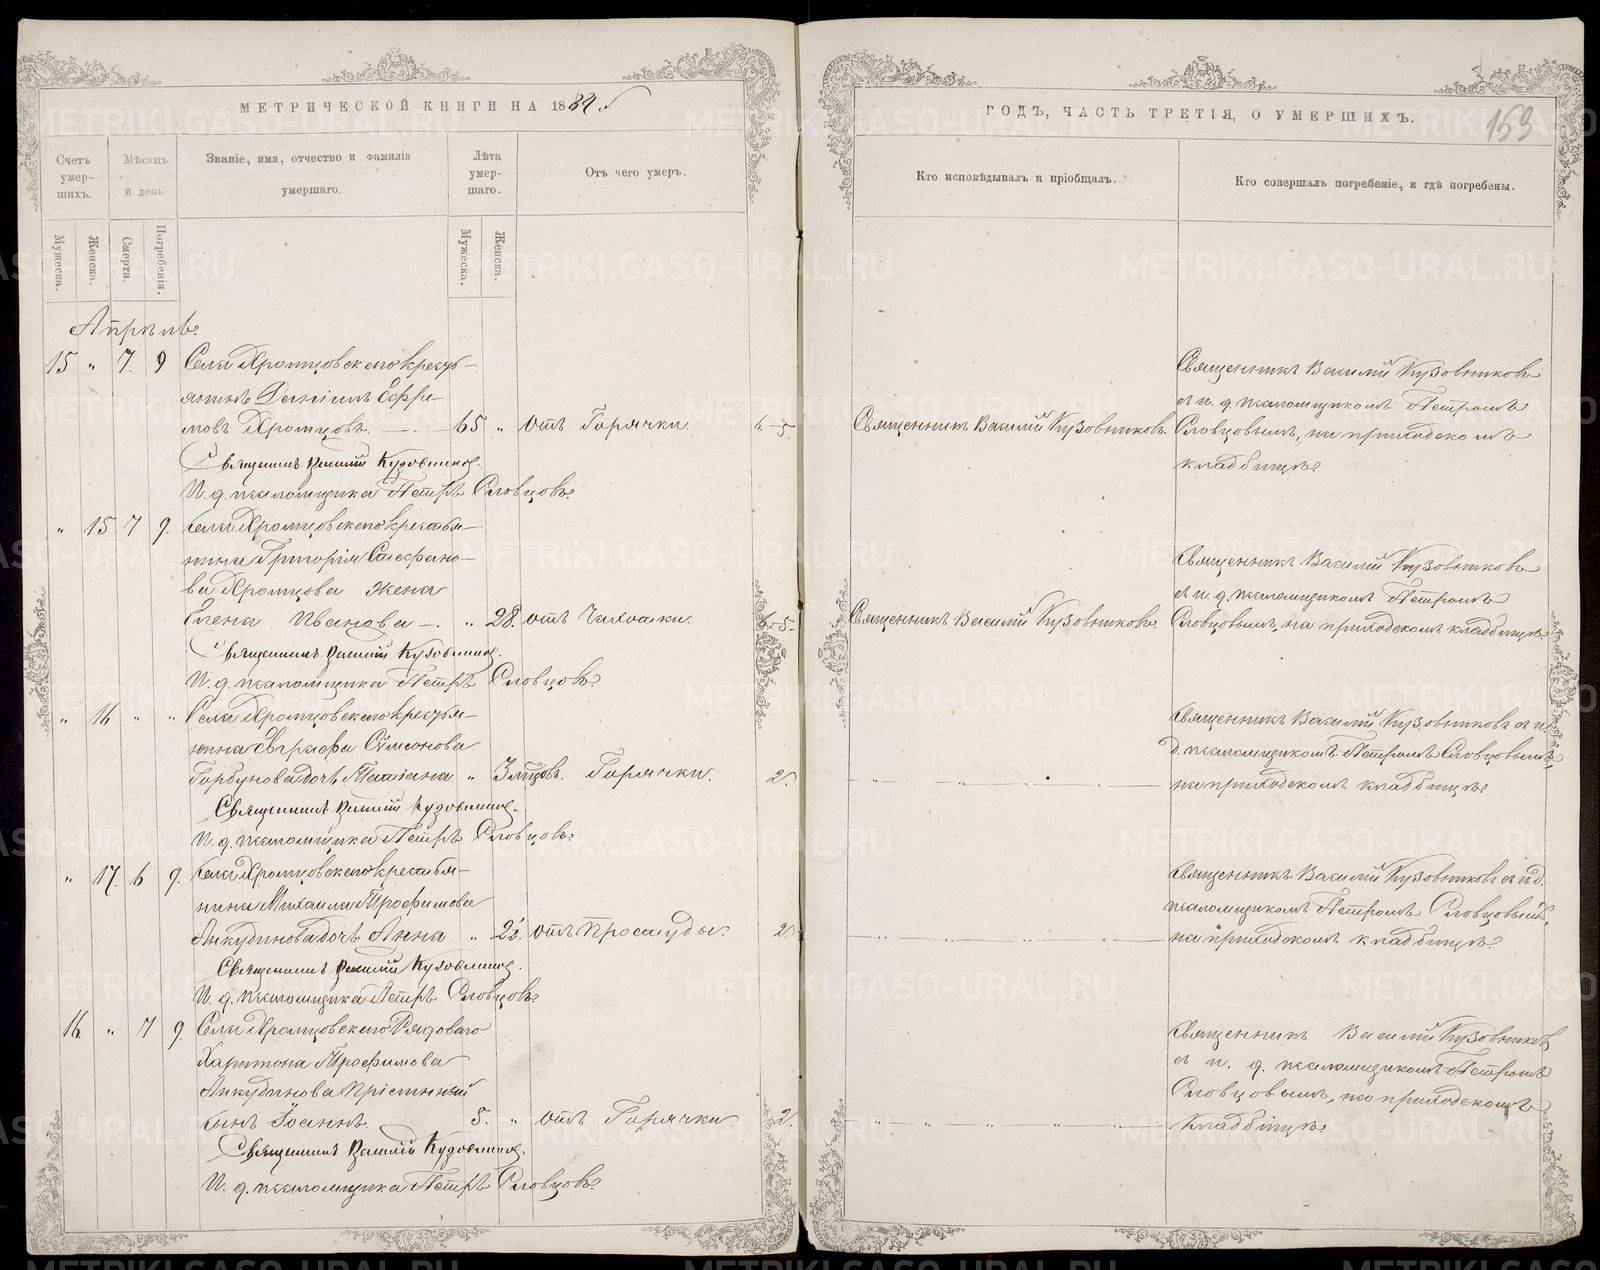 МЕТРИЧЕСКОЙ КНИГИ НА 1882
Счетъ умер-шихъ.
Мѣсяцъ и день
Званіе, имя, отчество и фамилія умершаго.
Лѣта умер-шаго.
Отъ чего умеръ.
Мужеска.
Женска.
Смерти.
Погребенія.
Мужеска.
Женска.
Апрѣль.
15 " 7. 9 Села Хромцовскаго кресть-
янинъ Даніилъ Ефре-
мовъ Хромцовъ. 65 " отъ Горячки 6.-5.
Священникъ Василій Кузовниковъ.
И. д. псаломщика Петръ Словцовъ.
" 15 7 9. Села Хромцовскаго крестья-
нина Григорія Стефано-
ва Хромцова жена
Елена Иванова " 28. отъ Чахотки. 6.-5.
Священникъ Василій Кузовниковъ.
И. д. псаломщика Петръ Словцовъ.
" 16 " " Села Хромцовскаго крестья-
нина Евграфа Симеонова
Горбунова дочь " 3 Горячки. 2.
Священникъ Василій Кузовниковъ.
И. д. псаломщика Петръ Словцовъ.
" 17. 6 9. Села Хромцовскаго крестья-
нина Михаила Трофимова
Анкудинова дочь Анна " 2 отъ Простуды. 2.
Священникъ Василій Кузовниковъ.
И. д. псаломщика Петръ Словцовъ.
16. " 7 9. Села Хромцовскаго Рядоваго
Харитона Трофимова
Анкудинова Пріемный
сынъ Іоаннъ. 5. " отъ Горячки 2.
Священникъ Василій Кузовниковъ.
И. д. псаломщика Петръ Словцовъ.
ГОДЪ, ЧАСТЬ ТРЕТІЯ, О УМЕРШИХЪ.
153
Кто исповѣдывалъ и пріобщалъ.
Кто совершалъ погребеніе, и гдѣ погребены.
Священникъ Василій Кузовниковъ
съ и. д. псаломщикомъ Петромъ
Священникъ Василій Кузовниковъ. Словцовымъ, на приходскомъ
кладбищѣ.
Священникъ Василій Кузовниковъ
съ и. д. псаломщикомъ Петромъ
Священникъ Василій Кузовниковъ. Словцовымъ, на приходскомъ кладбищѣ.
Священникъ Василій Кузовниковъ съ и.
д. псаломщикомъ Петромъ Словцовымъ,
на приходскомъ кладбищѣ.
Священникъ Василій Кузовниковъ съ и. д.
псаломщикомъ Петромъ Словцовымъ,
на приходскомъ кладбищѣ.
Священникъ Василій Кузовниковъ
съ и. д. псаломщикомъ Петромъ
Словцовымъ, на приходскомъ
кладбищѣ.
METRIKI.GASO-URAL.RU